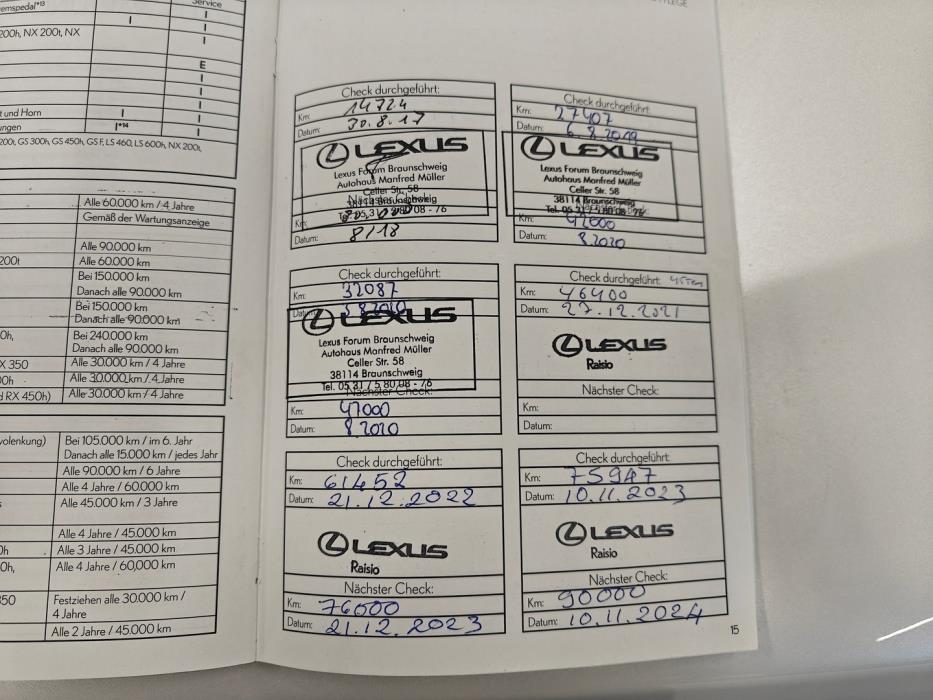 emspedal*¹³
Service
I
I
200h, NX 200t, NX
I
I
E
I
I
I
t und Horn
I
I
ungen
I*¹⁴
I
200t, GS 300h, GS 450h, GS F, LS 460, LS 600h, NX 200t,
Alle 60.000 km / 4 Jahre
Gemäß der Wartungsanzeige
Alle 90.000 km
200t
Alle 60.000 km
Bei 150.000 km
Danach alle 90.000 km
Bei 150.000 km
Danach alle 90.000 km
0h,
Bei 240.000 km
Danach alle 90.000 km
X 350
Alle 30.000 km / 4 Jahre
00h
Alle 30.000 km / 4 Jahre
d RX 450h)
Alle 30.000 km / 4 Jahre
volenkung)
Bei 105.000 km / im 6. Jahr
Danach alle 15.000 km / jedes Jahr
Alle 90.000 km / 6 Jahre
Alle 4 Jahre / 60.000 km
Alle 45.000 km / 3 Jahre
Alle 4 Jahre / 45.000 km
0h
Alle 3 Jahre / 45.000 km
0h,
Alle 4 Jahre / 60,000 km
350
Festziehen alle 30.000 km /
4 Jahre
Alle 2 Jahre / 45.000 km
Check durchgeführt:
Km: 14724
Datum: 30.8.17
LEXUS
Lexus Forum Braunschweig
Autohaus Manfred Müller
Celler Str. 58
38114 Braunschweig
Km:
Datum: 8/18
Check durchgeführt:
Km: 27407
Datum: 6.8.2019
LEXUS
Lexus Forum Braunschweig
Autohaus Manfred Müller
Celler Str. 58
38114 Braunschweig
Tel. 05 31 / 5 80 08 - 76
Km: 42000
Datum: 8.2020
Check durchgeführt:
Km: 32087
Datum: 3.8.2020
LEXUS
Lexus Forum Braunschweig
Autohaus Manfred Müller
Celler Str. 58
38114 Braunschweig
Tel. 05 31 / 5 80 08 - 76
Nächster Check:
Km: 47000
Datum: 8.2020
Check durchgeführt:
Km: 46400
Datum: 27.12.2021
LEXUS
Raisio
Nächster Check:
Km:
Datum:
Check durchgeführt:
Km: 61452
Datum: 21.12.2022
LEXUS
Raisio
Nächster Check:
Km: 76000
Datum: 21.12.2023
Check durchgeführt:
Km: 75947
Datum: 10.11.2023
LEXUS
Raisio
Nächster Check:
Km: 90000
Datum: 10.11.2024
15